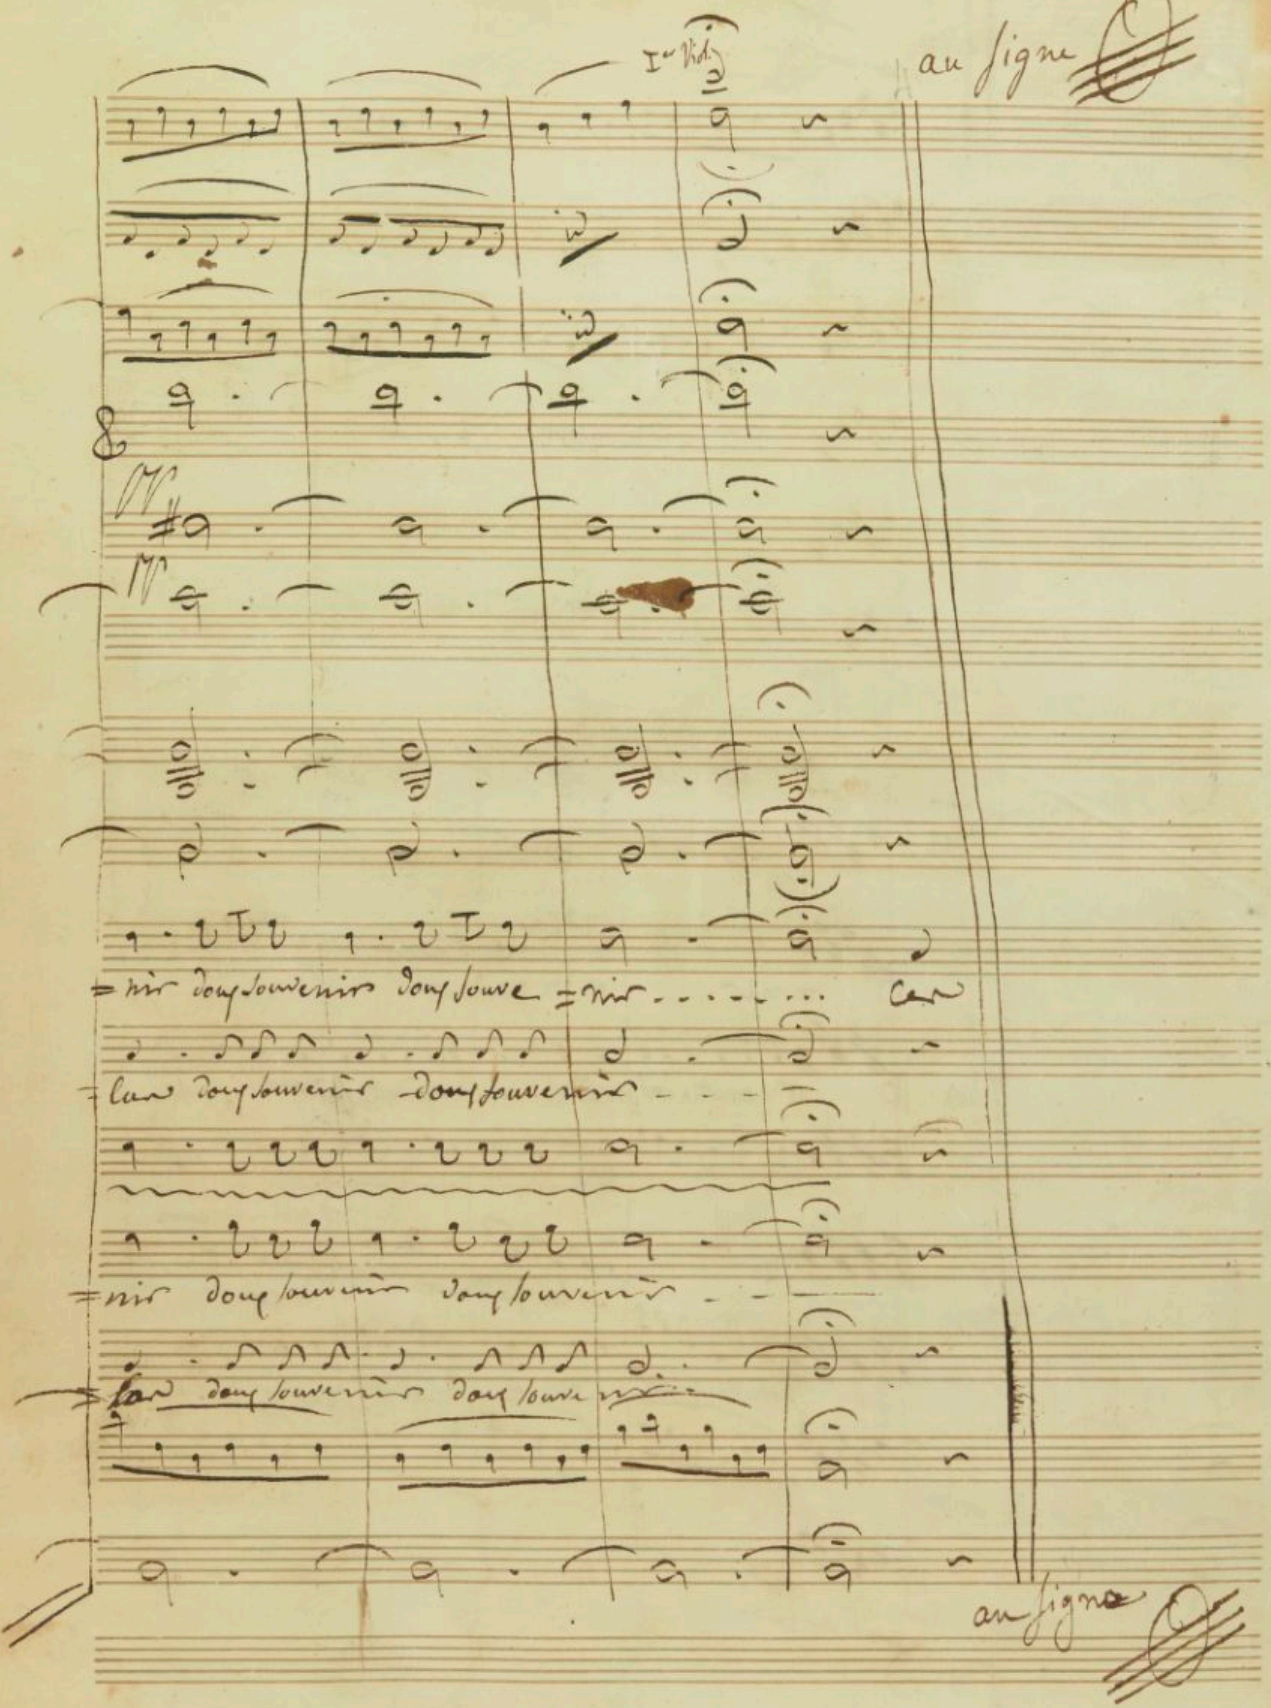 Ier Viol.
au signe
pp
pp
=nir doux souvenir doux souve=nir......... Car
=lar doux souvenir doux souvenir - - -
=nir doux souvenir doux souvenir - - -
=lar doux souvenir doux souvenir...
au signe